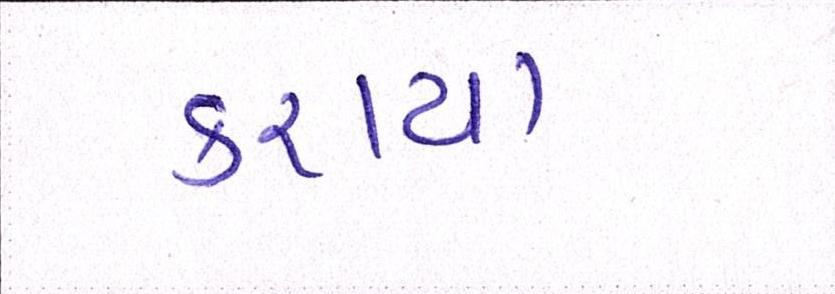 કરાયા